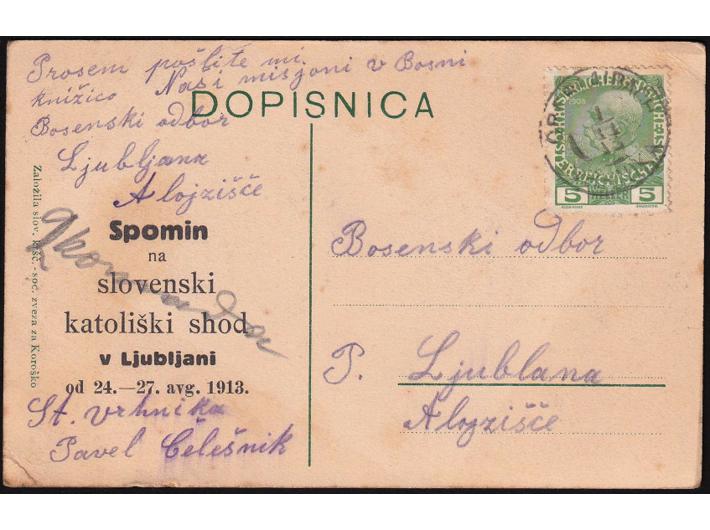 DOPISNICA
Prosem pošlite mi
knižico Naši misjoni v Bosni
Bosenski odbor
Ljubljana
Alojzišče
Spomin
na
slovenski
katoliški shod
v Ljubljani
od 24.—27. avg. 1913.
St. Vrhnika
Pavel Čelešnik
Založila slov. kršč.-soc. zveza za Koroško
5 5
Bosenski odbor
P. Ljublana
Alojzišče